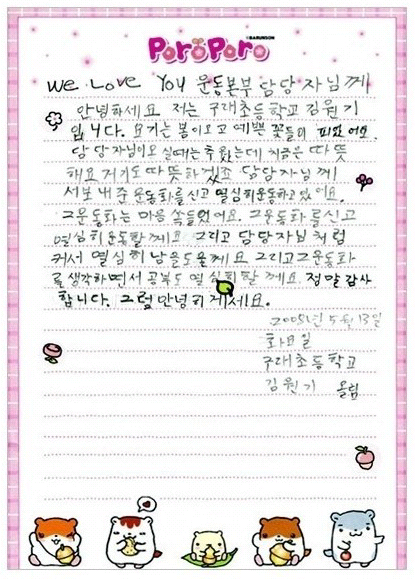 ©BARUNSON
PoroPoro
We Love You 운동본부 담당자님께
안녕하세요 저는 구래초등학교 김원기
입니다. 요기는 봄이오고 예쁜 꽃들의 피었어요.
담당자님이오실때는 추웠는데 지금은 따뜻
해요 거기도 따뜻하겠죠 담당자님께
서보내준 운동화를신고 열심히운동하고있어요.
그운동화는 마음 쏙들었어요. 그운동화를신고
열심히운동할께요. 그리고 담당자님 처럼
커서 열심히 남을도울께요 그리고그운동화
를생각하면서 공부도 열심히할께요. 정말감사
합니다. 그럼안녕히계세요.
2008년 5월 13일
화요일
구래초등학교
김원기 올림